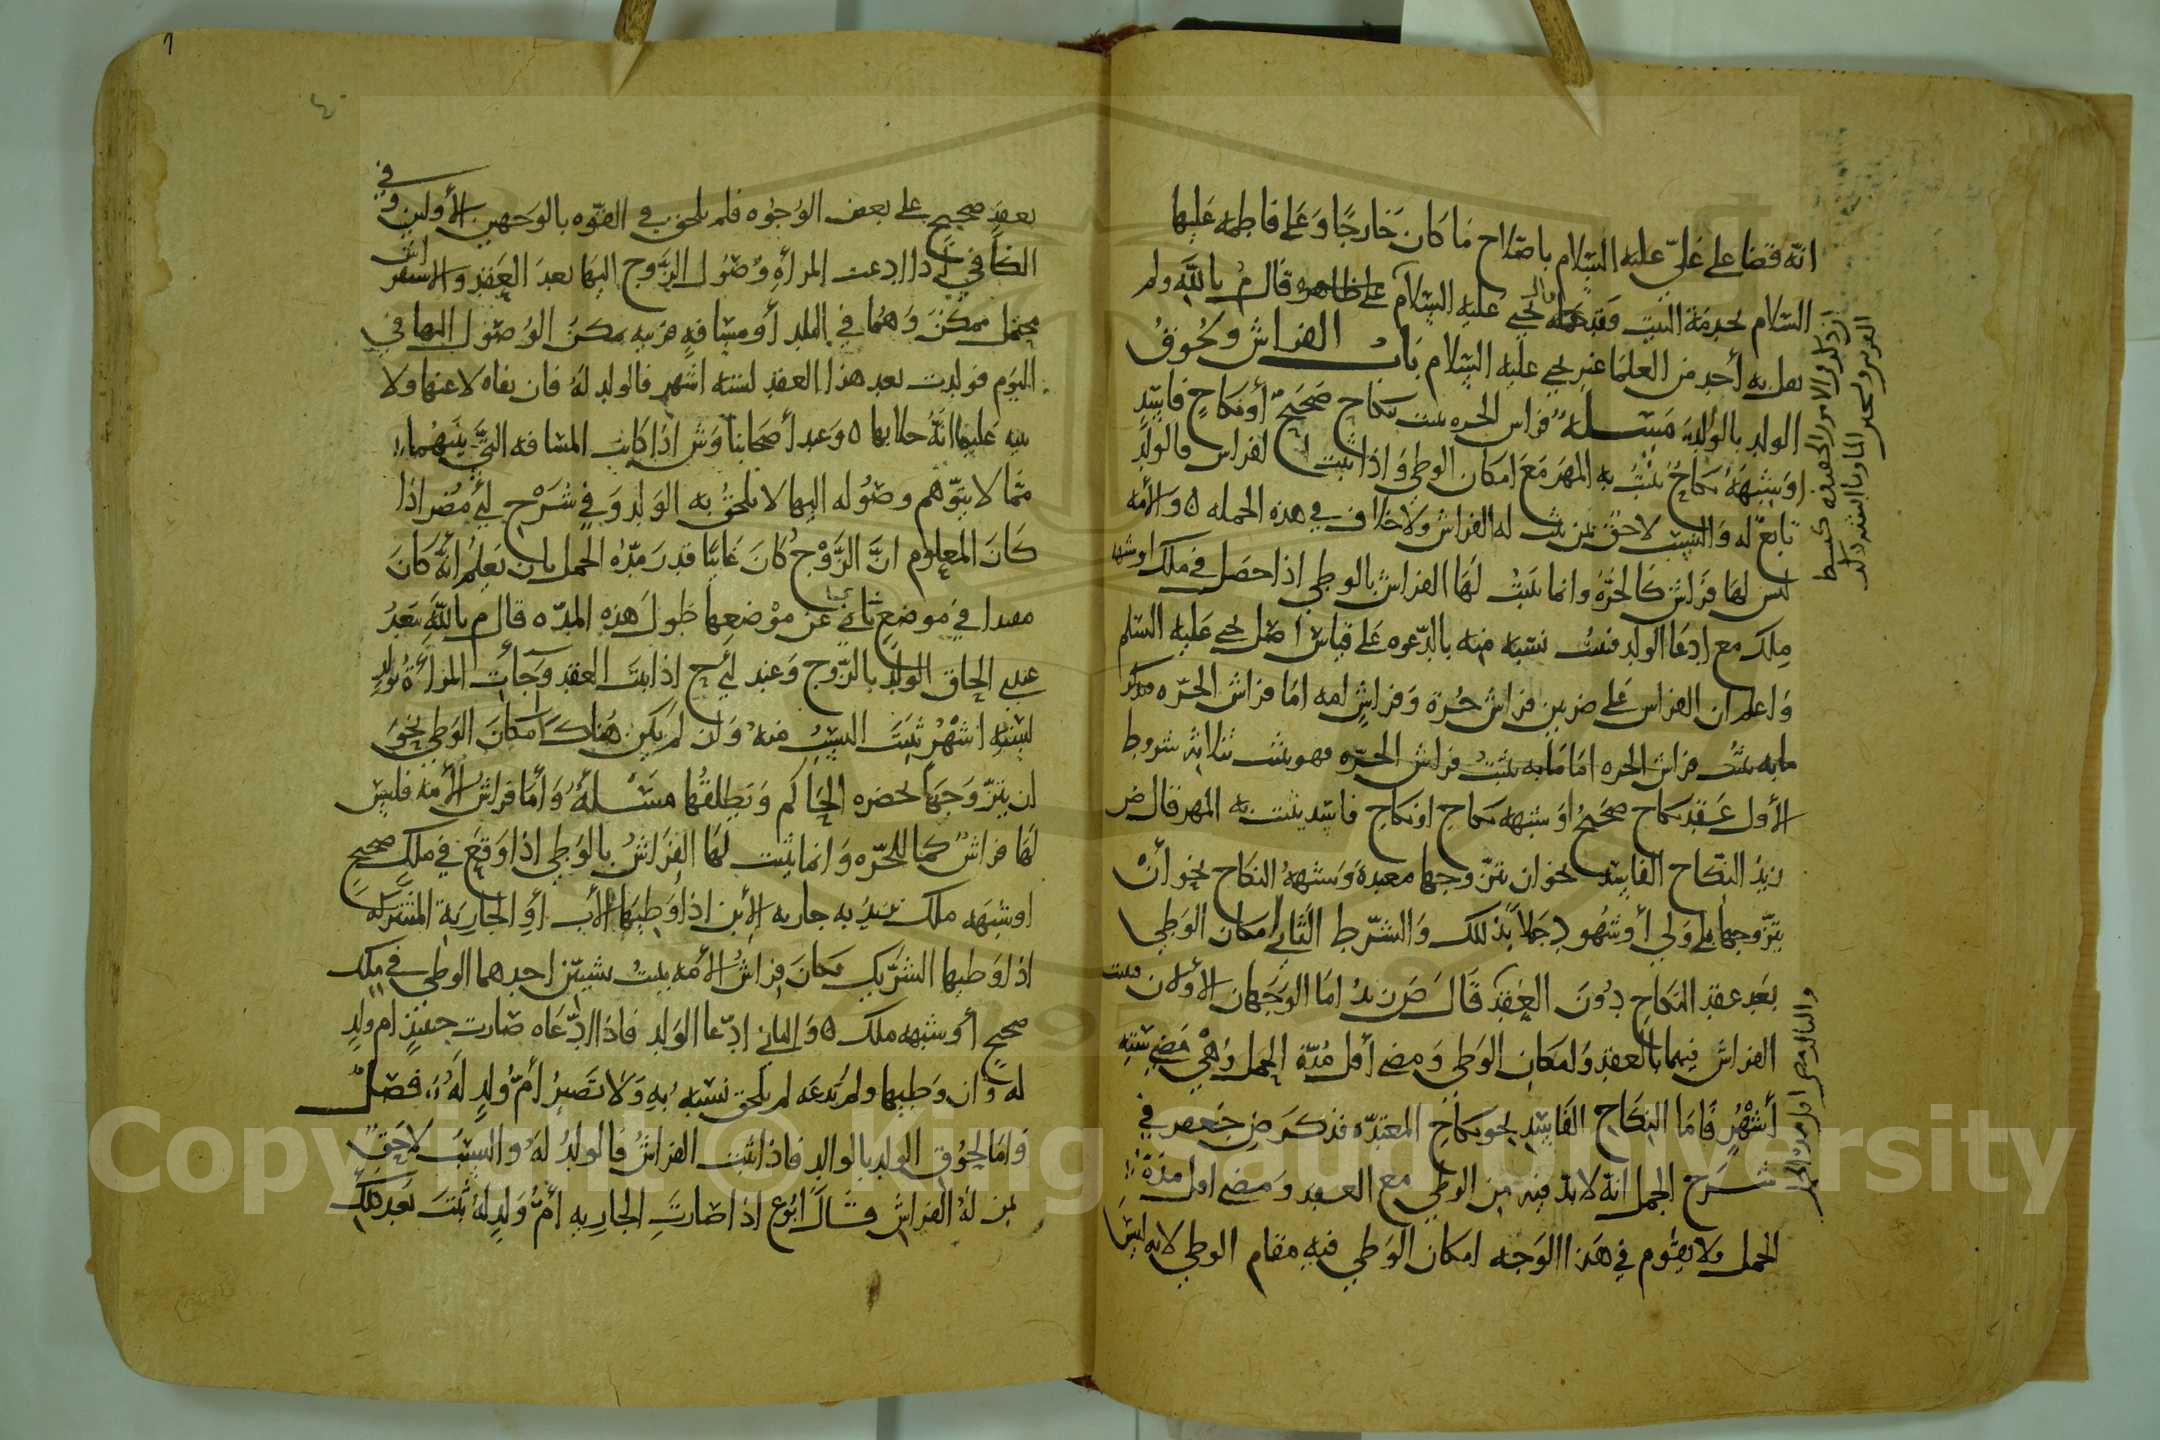 انه قضا على عليّ عليه السلام باصلاح ما كان خارجًا وعلى فاطمه عليها
السلام بخدمة البيت فقد حمله يحيى عليه السلام على ظاهره قال م بالله ولم
يقل به أحد من العلما غير يحيى عليه السلام باب الفراش ولحوق
الولد بالوالد مسئلة فراش الحره يثبت بنكاح صحيح أو نكاح فاسد
او شبهة نكاح يثبت به المهر مع امكان الوطي واذا ثبت الفراش فالولد
تابع له والنسب لاحق بمن ثبت له الفراش ولا خلاف في هذه الجمله ٥ والأمه
ليس لها فراش كالحرّة وانما يثبت لها الفراش بالوطي اذا حصل في ملك او شبهه
ملك مع ادعا الولد فيثبت نسبه منه بالدّعوه على قياس اصل يحيى عليه السلم
واعلم ان الفراش على ضربين فراش حُرة وفراش امه اما فراش الحرّه فنذكر
ما به يثبت فراش الحره اما ما به يثبت فراش الحرّه فهو يثبت بثلاثة شروط
الأول عقد نكاح صحيح او شبهه نكاح او نكاح فاسد يثبت به المهر قال ض
زيد النكاح الفاسد نحو ان يتزوجها معتدة وشبهة النكاح نحو أن
يتزوجها بلا ولي أو شهود جهلًا بذلك والشرط الثاني امكان الوطي
بعد عقد النكاح دون العقد قال ض زيد اما الوجهان الأولان فيثبت
الفراش فيهما بالعقد وامكان الوطي ومضي أقل مُدّة الحمل وهي مضي ستة
أشهر فاما النكاح الفاسد نحو نكاح المعتدّه فذكر ض جعفر في
شرح الجمل انه لا بد فيه من الوطي مع العقد ومضي اقل مدة
الحمل ولا يقوم في هذا الوجه امكان الوطي فيه مقام الوطي لانه ليس
والثالث مضي اقل مدة الحمل
بعقد صحيح على بعض الوجوه فلم يلحق في القوه بالوجهين الأولين وفي
الكافي اذا ادعت المرأة وصول الزوج اليها بعد العقد والسفر
محتمل ممكن وهما في البلد أو مسافه قريبه يمكن الوصول اليها في
اليوم فولدت بعد هذا العقد لستة اشهر فالولد له فان نفاه لاعنها ولا
بينه عليها انه خلا بها ٥ وعند أصحابنا وش اذا كانت المسافه التي بينهما
مما لا يتوهم وصوله اليها لا يلحق به الولد وفي شرح لأبي مضر اذا
كان المعلوم انَّ الزَّوْجُ كان غائبًا قدر مدّة الحمل بان يعلم أنه كان
مقيدا في موضع نائي عن موضعها طول هذه المدّه قال م بالله يبعد
عندي الحاق الولد بالزوج وعند لأبي ح اذا ثبت العقد وجأت المرأة بولد
لستة اشهر ثبت النسب منه وان لم يكن هناك امكان الوطي نحو
ان يتزوجها بحضره الحاكم ويطلقها مسئلة وأما فراش الأمة فليس
لها فراش كما للحرّه وانما يثبت لها الفراش بالوطي اذا وقع في ملك صحيح
او شبهه ملك نريد به جاريه الابن اذا وطيها الأب أو الجارية المشتركة
اذا وطيها الشريك فكان فراش الأمه يثبت بشيئين احدهما الوطي في ملك
صحيح أو شبهه ملك ٥ والثاني ادّعا الولد فاذا ادّعاه صارت حينئذ ام ولد
له وان وطيها ولم يدعه لم يلحق نسبه به ولا تصير أم ولد له فصل
واما لحوق الولد بالوالد فاذا ثبت الفراش فالولد له والنسب لاحق
لمن له الفراش قال أبو ع اذا صارت الجاريه أم ولد له ثبت بعد ذلك